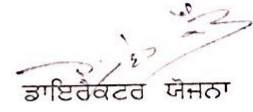 ਡਾਇਰੈਕਟਰ ਯੋਜਨਾ